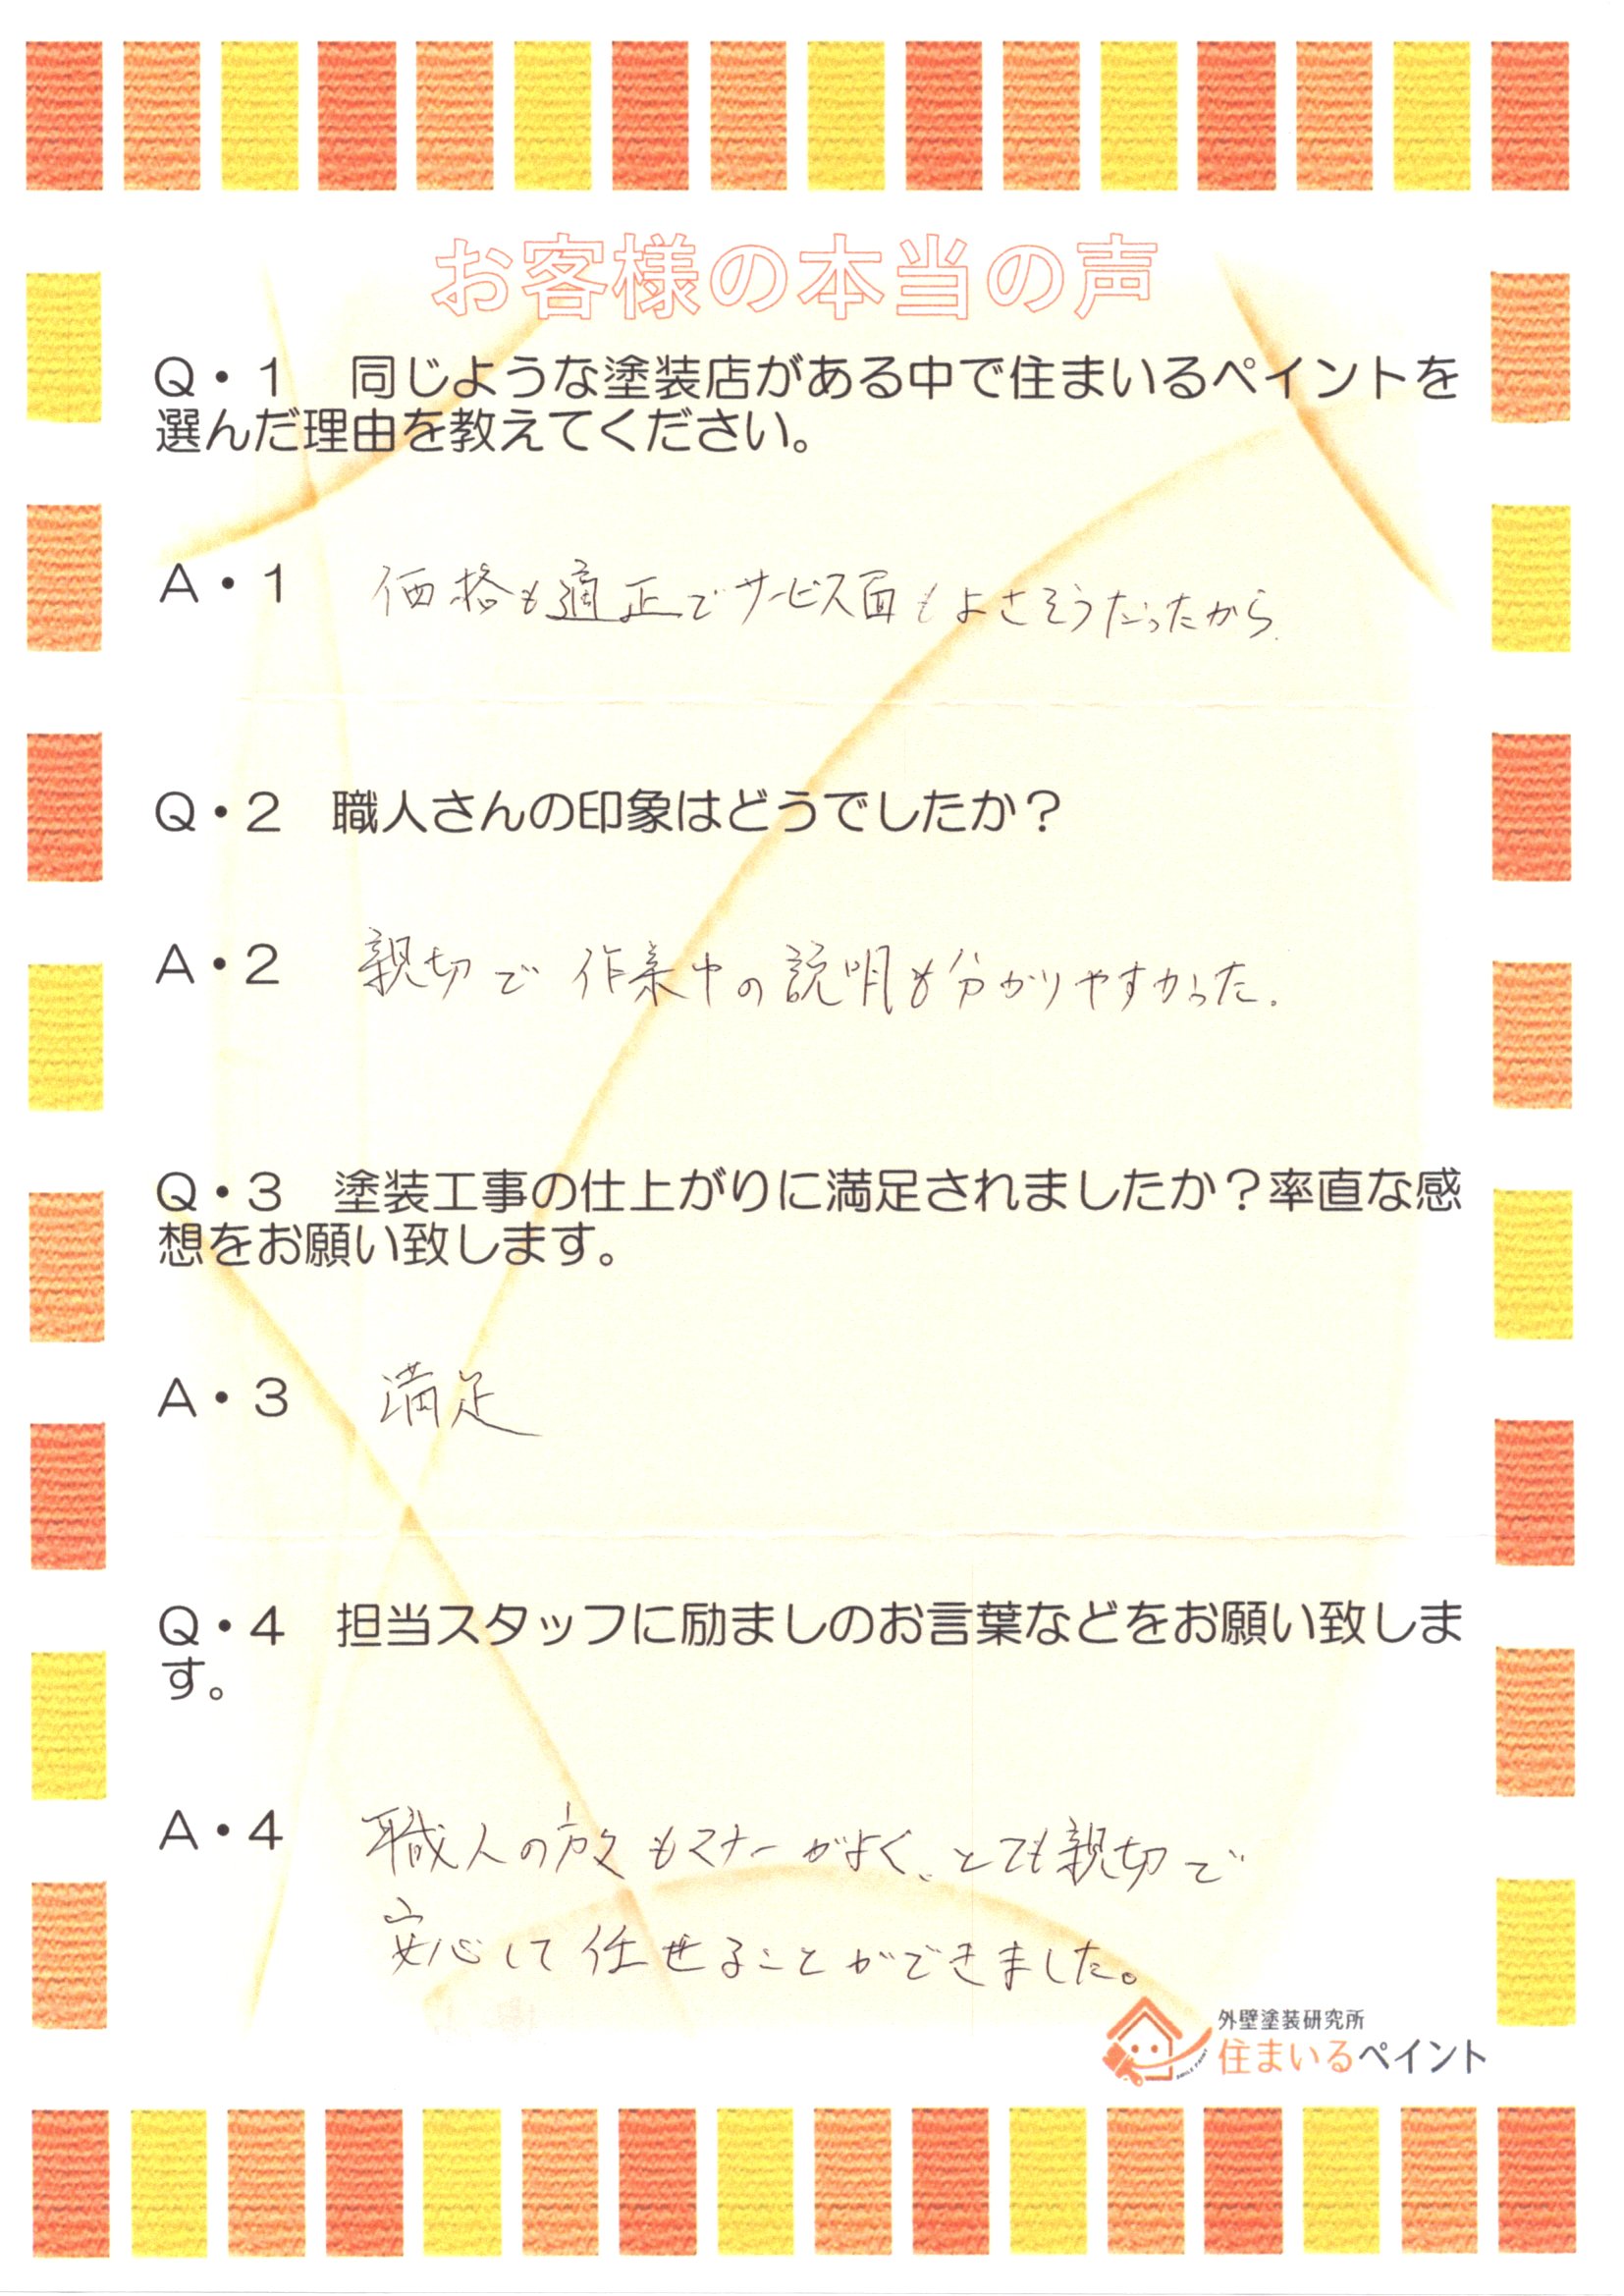 お客様の本当の声
Q・1　同じような塗装店がある中で住まいるペイントを
選んだ理由を教えてください。
A・1　価格も適正でサービス面もよさそうだったから.
Q・2　職人さんの印象はどうでしたか？
A・2　親切で作業中の説明も分かりやすかった.
Q・3　塗装工事の仕上がりに満足されましたか？率直な感
想をお願い致します。
A・3　満足
Q・4　担当スタッフに励ましのお言葉などをお願い致しま
す。
A・4　職人の方もマナーがよく、とても親切で
安心して任せることができました。
外壁塗装研究所
住まいるペイント